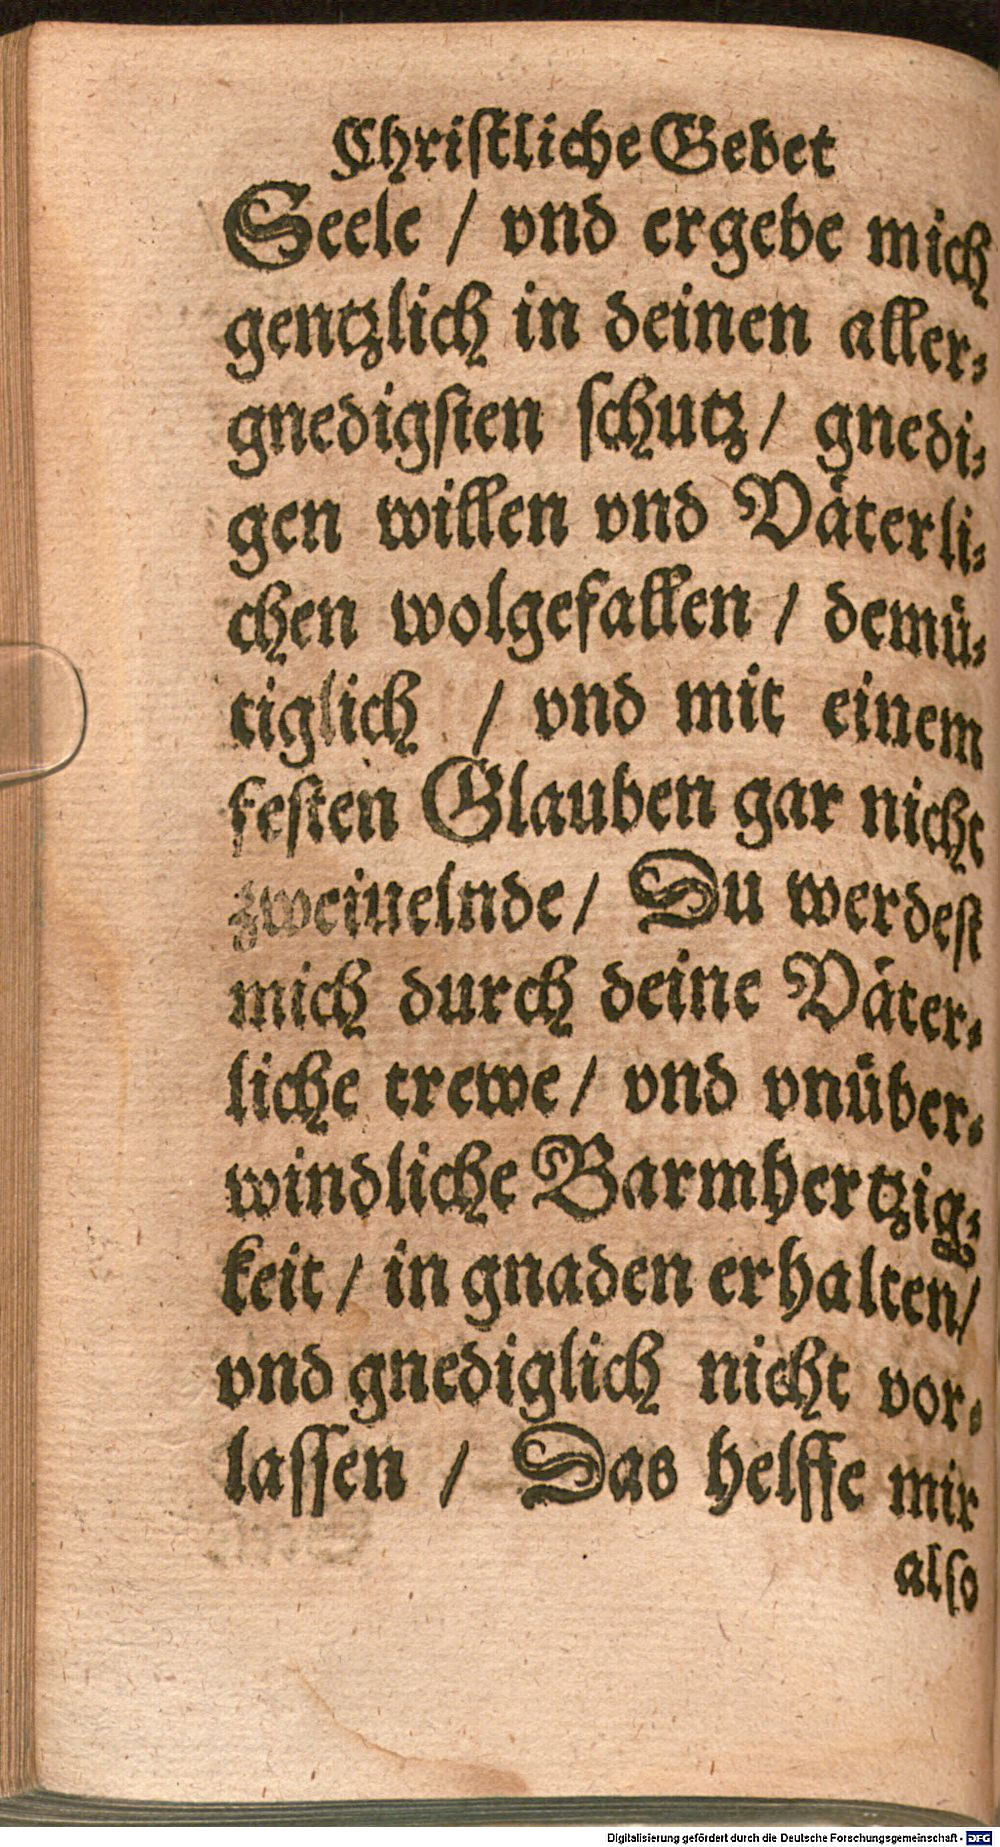 Christliche Gebet
Seele / vnd ergebe mich
gentzlich in deinen aller-
gnedigsten schutz / gnedi-
gen willen vnd Väterli-
chen wolgefallen / demü-
tiglich / vnd mit einem
festen Glauben gar nicht
zweiuelnde / Du werdest
mich durch deine Väter-
liche trewe / vnd vnüber-
windliche Barmhertzig-
keit / in gnaden erhalten /
vnd gnediglich nicht vor-
lassen / Das helffe mir
also
Digitalisierung gefördert durch die Deutsche Forschungsgemeinschaft - DFG